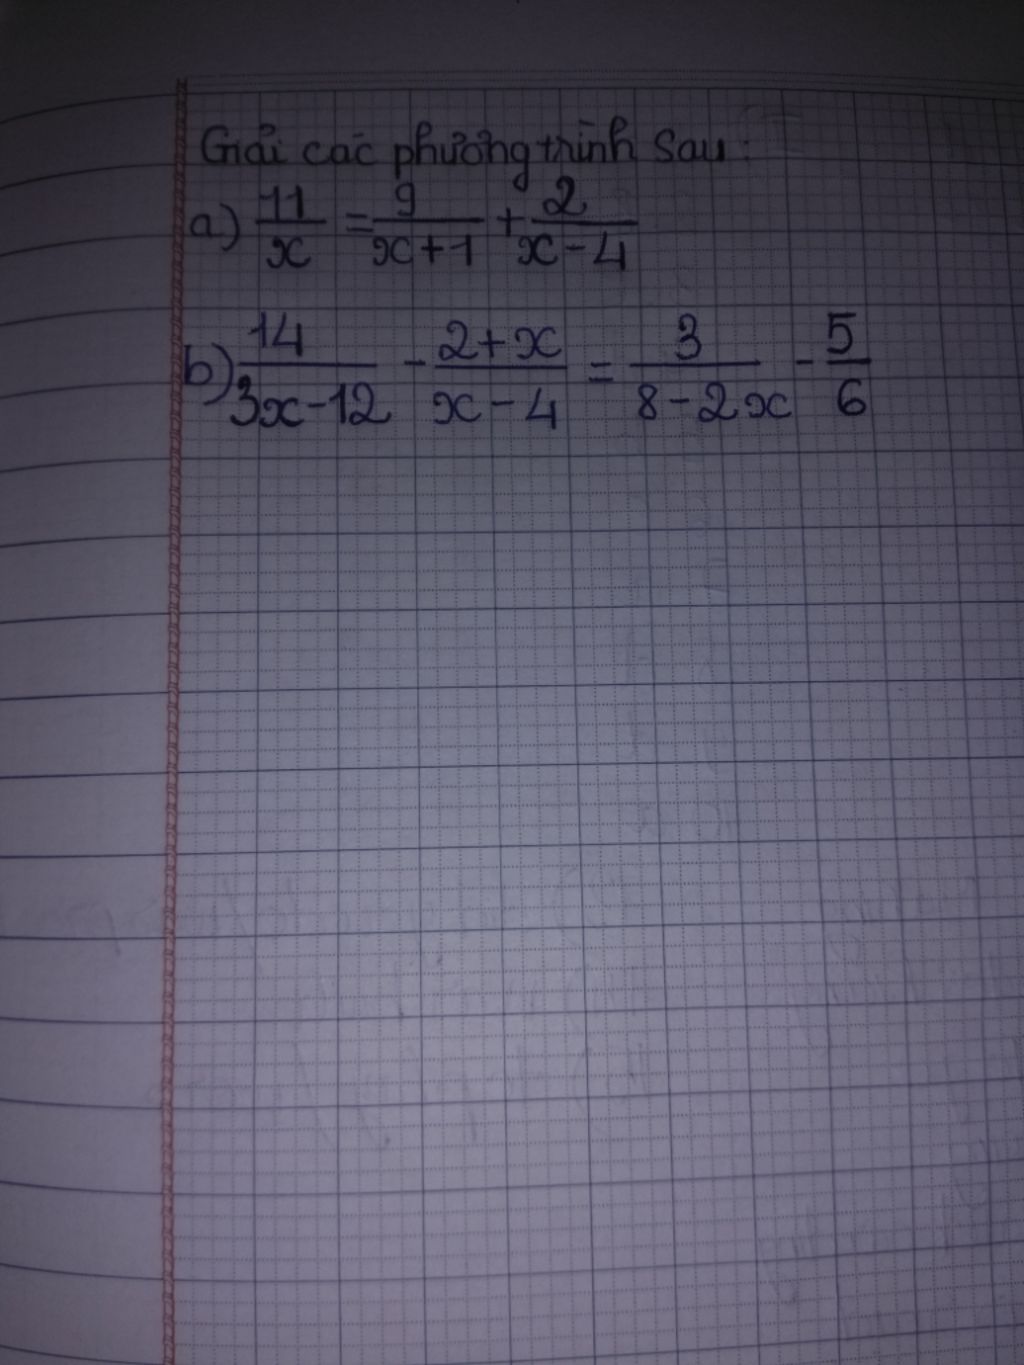 Giải các phương trình sau:
a) 11/x = 9/x+1 + 2/x-4
b) 14/3x-12 - 2+x/x-4 = 3/8-2x - 5/6